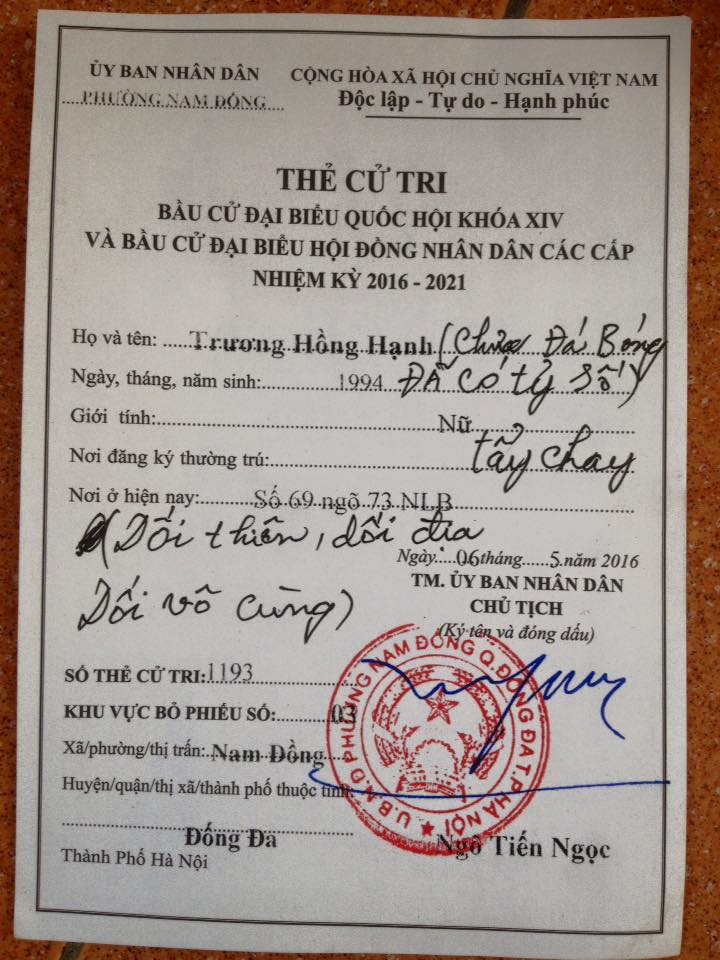 ỦY BAN NHÂN DÂN
PHƯỜNG NAM ĐỒNG
CỘNG HÒA XÃ HỘI CHỦ NGHĨA VIỆT NAM
Độc lập - Tự do - Hạnh phúc
THẺ CỬ TRI
BẦU CỬ ĐẠI BIỂU QUỐC HỘI KHÓA XIV
VÀ BẦU CỬ ĐẠI BIỂU HỘI ĐỒNG NHÂN DÂN CÁC CẤP
NHIỆM KỲ 2016 - 2021
Họ và tên: Trương Hồng Hạnh (Chưa Đá Bóng
Ngày, tháng, năm sinh: 1994 ĐÃ có tỷ số)
Giới tính: Nữ
Nơi đăng ký thường trú: tẩy chay
Nơi ở hiện nay: Số 69 ngõ 73 NLB
(Dối thiên, dối địa
Dối vô cùng)
Ngày 06 tháng 5 năm 2016
TM. ỦY BAN NHÂN DÂN
CHỦ TỊCH
(Ký tên và đóng dấu)
SỐ THẺ CỬ TRI: 1193
KHU VỰC BỎ PHIẾU SỐ: 03
Xã/phường/thị trấn: Nam Đồng
Huyện/quận/thị xã/thành phố thuộc tỉnh:
Đống Đa
Thành Phố Hà Nội
U.B.N.D PHƯỜNG NAM ĐỒNG Q.ĐỐNG ĐA T.P HÀ NỘI
Ngô Tiến Ngọc